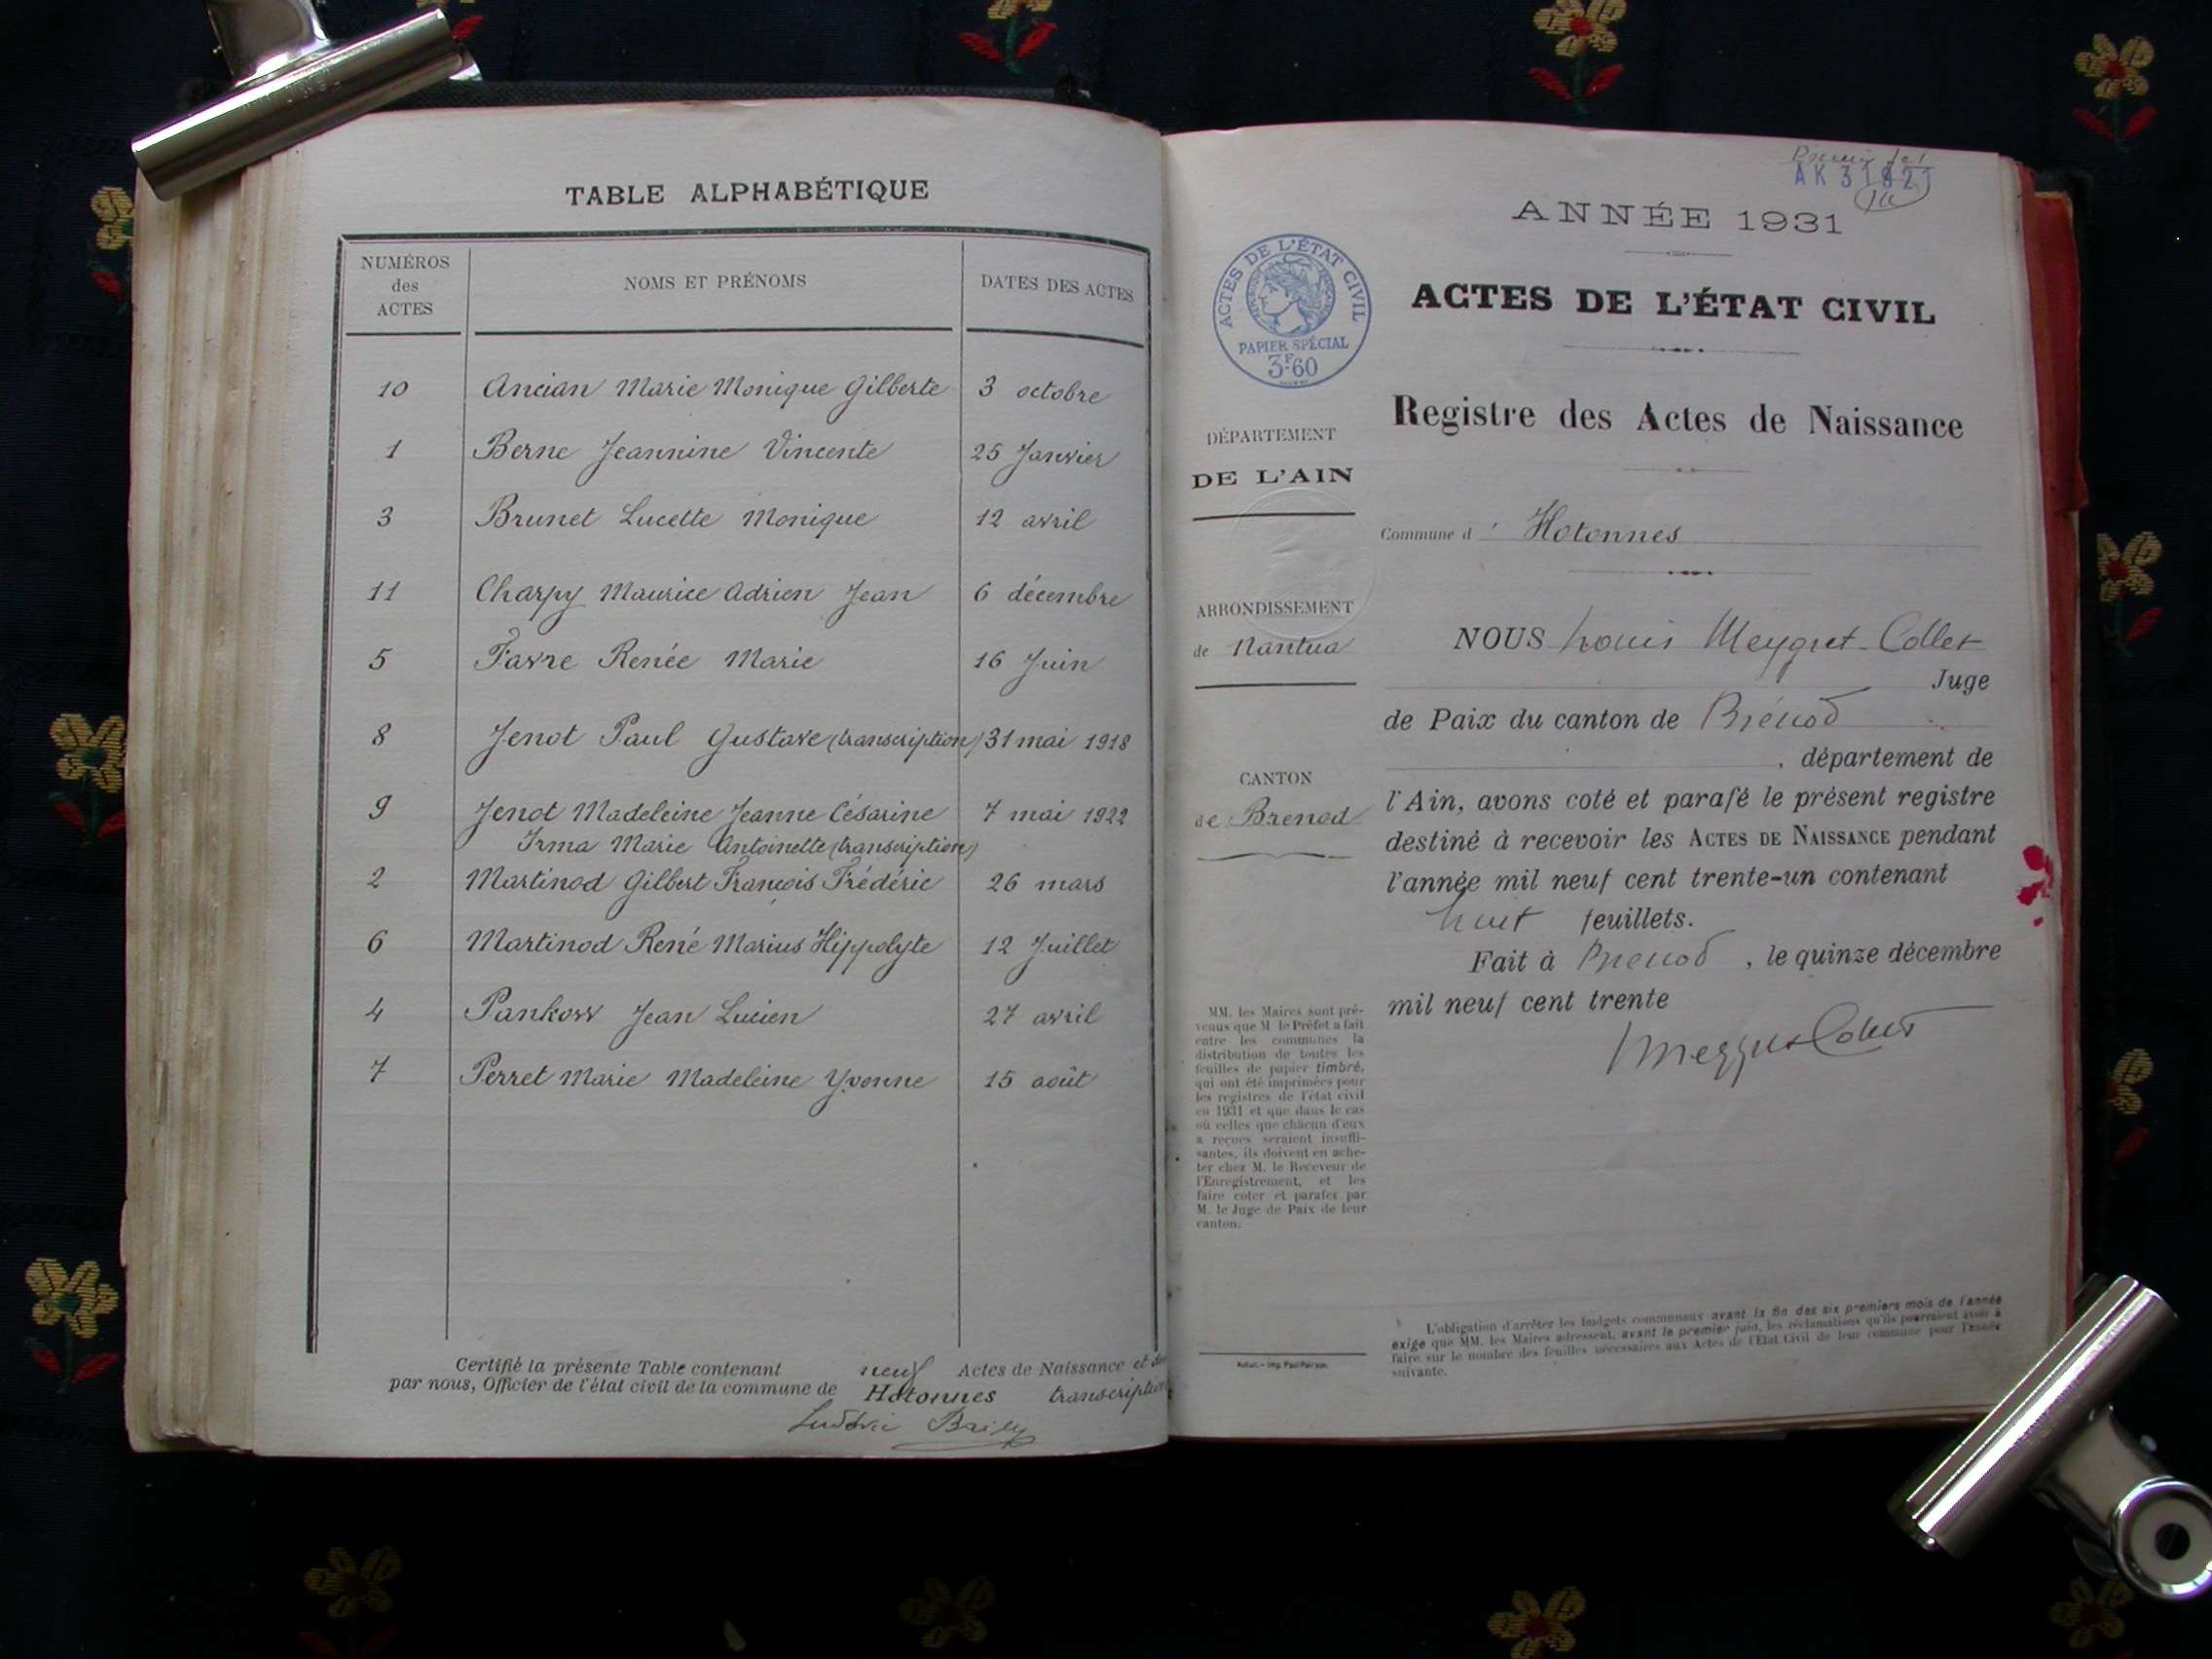 TABLE ALPHABÉTIQUE
NUMÉROS
des
ACTES
NOMS ET PRÉNOMS
DATES DES ACTES
10 Ancian Marie Monique Gilberte 3 octobre
1 Berne Jeannine Vincente 25 Janvier
3 Brunet Lucette Monique 12 avril
11 Charpy Maurice Adrien Jean 6 décembre
5 Favre Renée Marie 16 Juin
8 Jenot Paul Gustave (transcription) 31 mai 1918
9 Jenot Madeleine Jeanne Césarine 7 mai 1922
Irma Marie Antoinette (transcription)
2 Martinod Gilbert François Frédéric 26 mars
6 Martinod René Marius Hippolyte 12 Juillet
4 Pankow Jean Lucien 27 avril
7 Perret Marie Madeleine Yvonne 15 août
Certifié la présente Table contenant neuf Actes de Naissance et
par nous, Officier de l'état civil de la commune de Hotonnes transcription
Ludovic Bailly
AK
ANNÉE 1931
ACTES DE L'ÉTAT CIVIL
RÉPUBLIQUE FRANÇAISE
PAPIER SPÉCIAL
3F.60
ACTES DE L'ÉTAT CIVIL
Registre des Actes de Naissance
DÉPARTEMENT
DE L'AIN
Commune d' Hotonnes
ARRONDISSEMENT
de Nantua
NOUS Louis Meygret-Collet
Juge
de Paix du canton de Brénod
, département de
CANTON
de Brenod
l'Ain, avons coté et parafé le présent registre
destiné à recevoir les ACTES DE NAISSANCE pendant
l'année mil neuf cent trente-un contenant
huit feuillets.
Fait à Brenod , le quinze décembre
mil neuf cent trente
Meygret Collet
MM. les Maires sont pré-
venus que M. le Préfet a fait
entre les communes la
distribution de toutes les
feuilles de papier timbré,
qui ont été imprimées pour
les registres de l'état civil
en 1931 et que dans le cas
où celles que châcun d'eux
a reçues seraient insuffi-
santes, ils doivent en ache-
ter chez M. le Receveur de
l'Enregistrement, et les
faire coter et parafer par
M. le Juge de Paix de leur
canton.
L'obligation d'arrêter les budgets communaux avant la fin des six premiers mois de l'année
exige que MM. les Maires adressent, avant le premier juin, les réclamations qu'ils pourraient avoir à
faire sur le nombre des feuilles nécessaires aux Actes de l'Etat Civil de leur commune pour l'année
suivante.